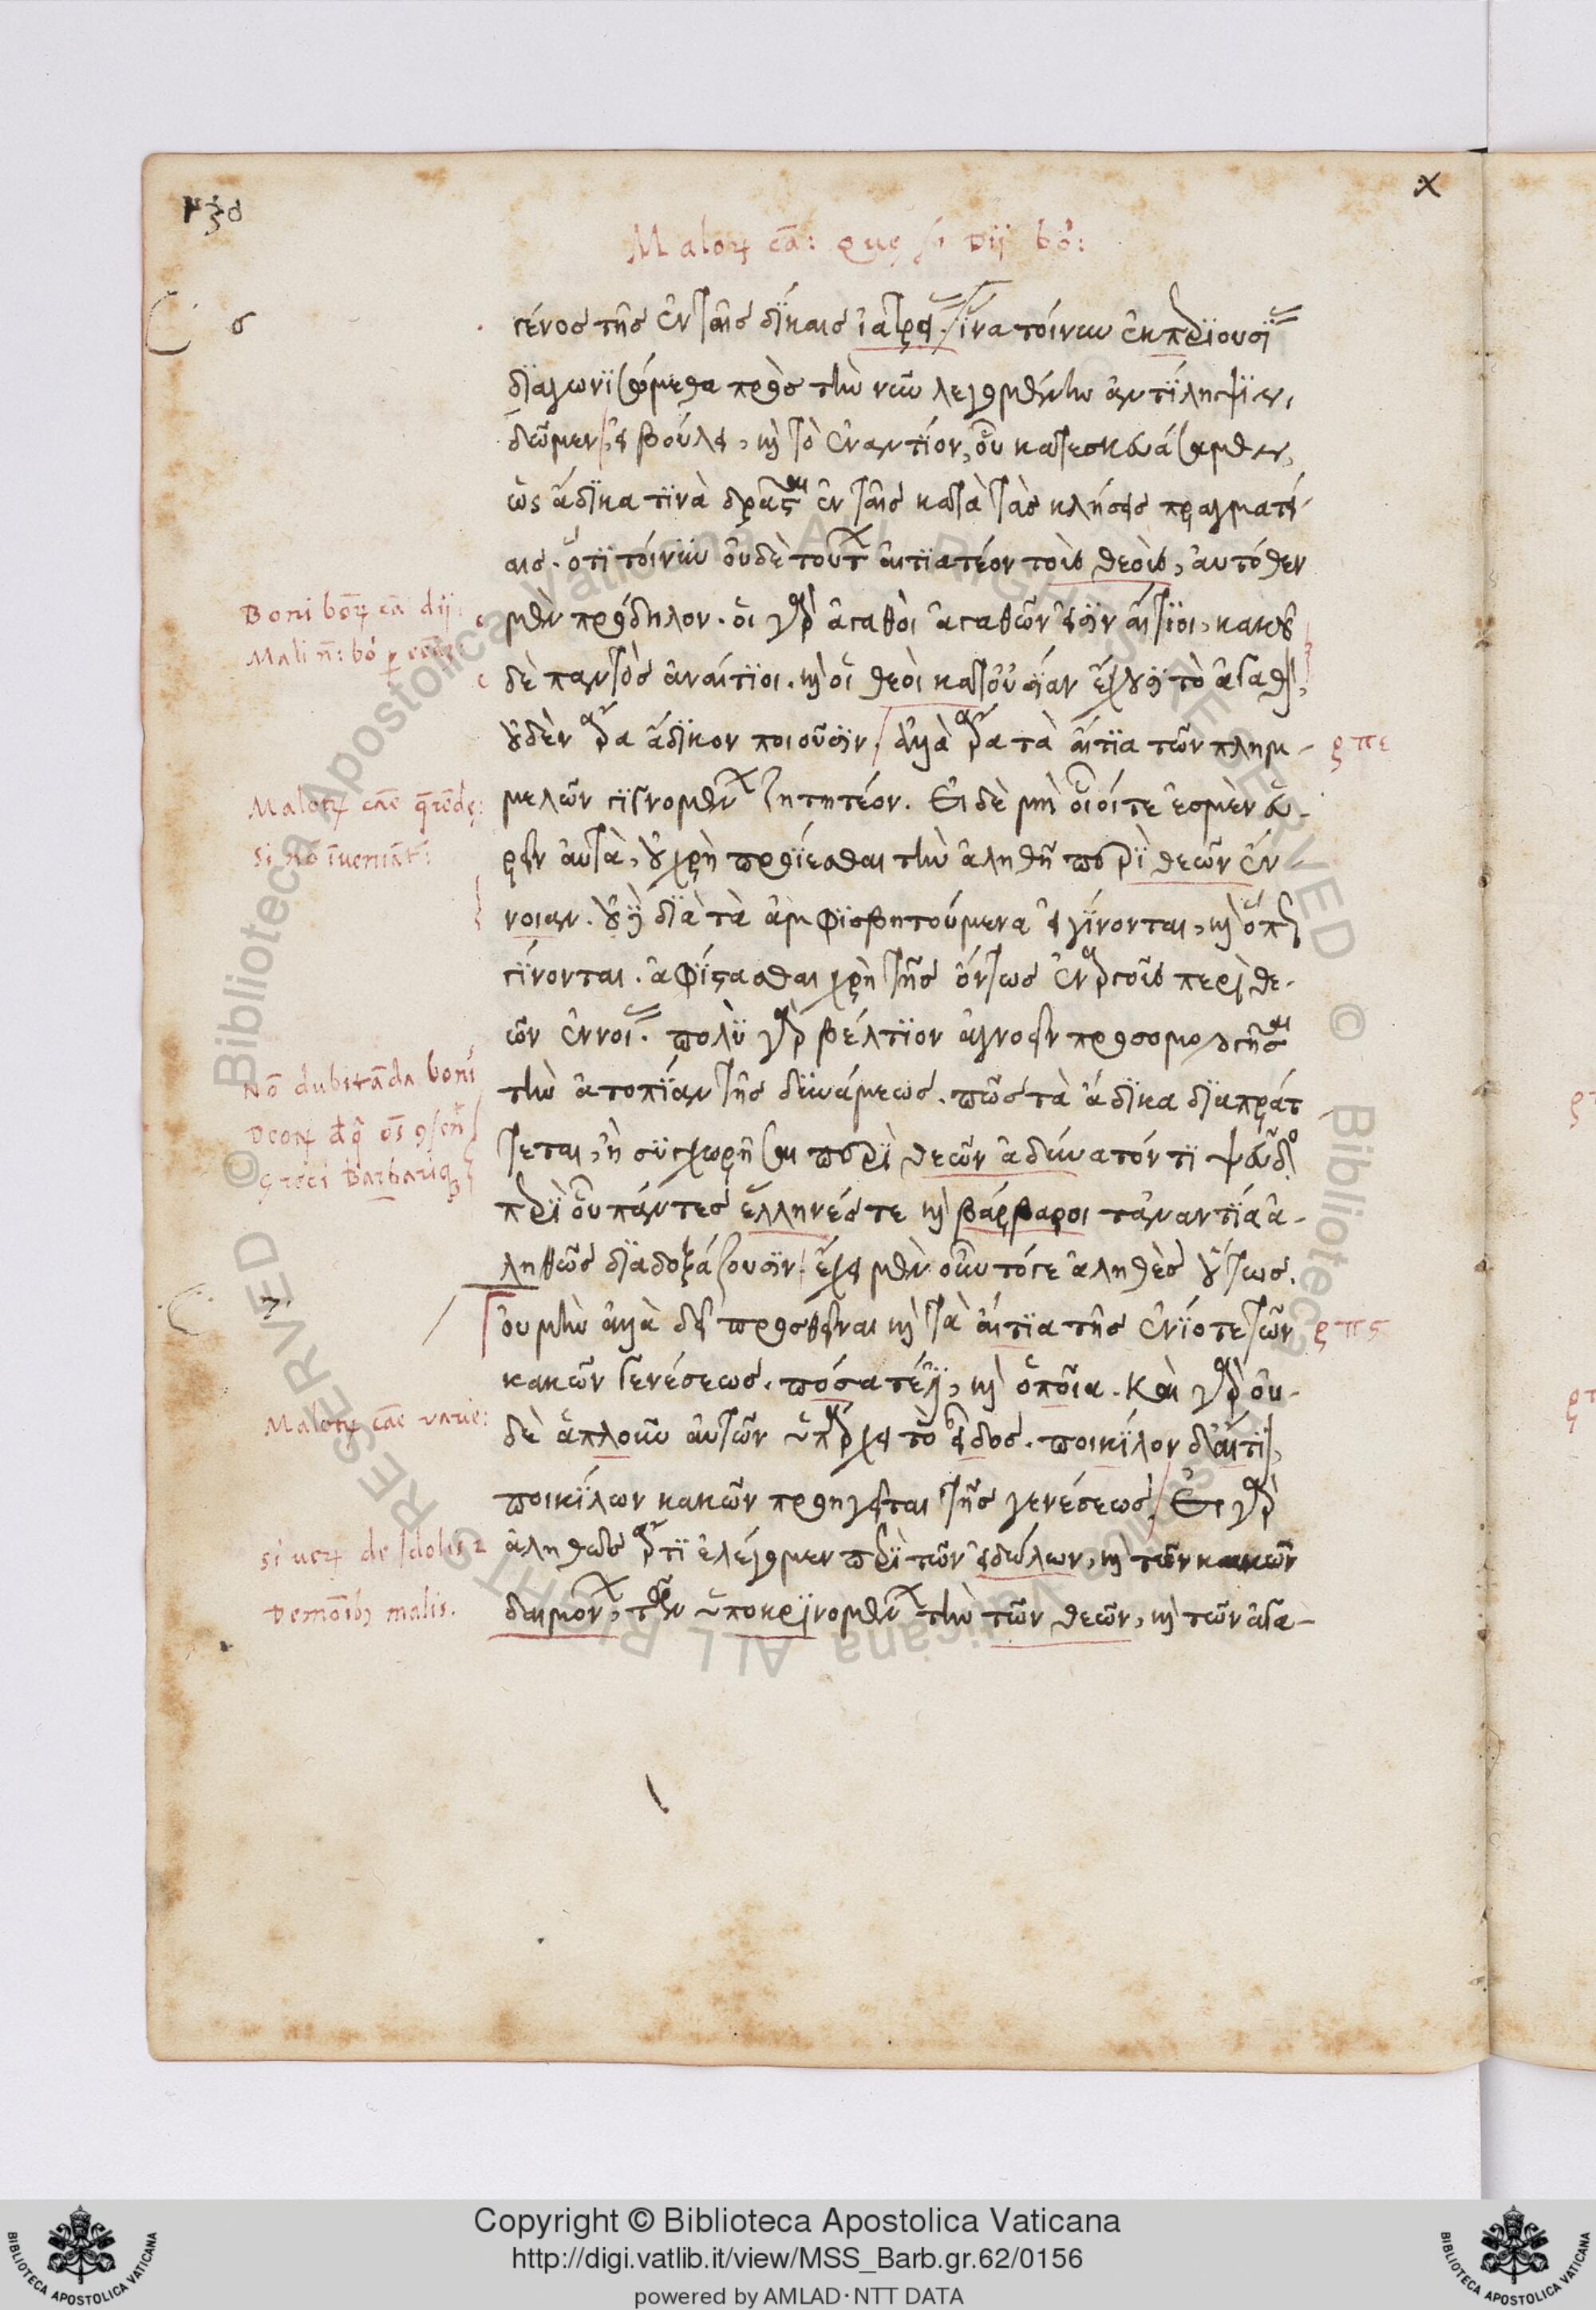 ρξδ
x
Malorum cā: que si Dij bo:
ϛ
γένος τῆς ἐν ταῖς δίκαις ἰατρεί. ἵνα τοίνυν ἐκ περιουσί
διαγωνισώμεθα πρὸς τὴν νῦν λεγομένην ἀντίληψιν,
δῶμεν, εἰ βούλει, καὶ τὸ ἐναντίον, οὗ κατεσκευάσαμεν,
ὡς ἄδικα τινὰ δρᾶσθαι ἐν ταῖς κατὰ τὰς κλήσεις πραγματεί-
αις. ὅτι τοίνυν οὐδὲ τούτων αἰτιατέον τοὺς θεοὺς, αὐτόθεν
μὲν πρόδηλον. οἱ γὰρ ἀγαθοὶ ἀγαθῶν εἰσιν αἴτιοι, κακοῦ
δὲ παντὸς ἀναίτιοι. καὶ οἱ θεοὶ κατοὐσίαν ἔχουσι τὸ ἀγαθόν,
οὐδὲν ἄρα ἄδικον ποιοῦσιν. ἀλλὰ ἄρα τὰ αἴτια τῶν πλημ-
μελῶν γιγνομένων ζητητέον. εἰ δὲ μὴ οἷοίτε ἐσμὲν εὑ-
ρεῖν αὐτὰ, οὐ χρὴ προΐεσθαι τὴν ἀληθῆ περὶ θεῶν ἔν-
νοιαν. οὐδὲ διὰ τὰ ἀμφισβητούμενα εἰ γίνονται, καὶ ὅπως
γίνονται. ἀφίστασθαι χρὴ τῆς ὄντως ἐναργοῦς περὶ θε-
ῶν ἐννοί. πολὺ γὰρ βέλτιον ἀγνοεῖν προσομολογῆσαι
τὴν ἀτοπίαν τῆς δυνάμεως. πῶς τὰ ἄδικα διαπράτ-
τεται, ἢ συγχωρῆσαι περὶ θεῶν ἀδύνατόν τι ψεῦδος
περὶ οὗ πάντες ἕλληνές τε καὶ βάρβαροι τἀναντία ἀ-
ληθῶς διαδοξάζουσιν. ἔχει μὲν οὖν τόγε ἀληθὲς οὕτως.
ζ
οὐ μὴν ἀλλὰ δεῖ προσθεῖναι καὶ τὰ αἴτια τῆς ἐνίοτε τῶν
κακῶν γενέσεως. πόσα τέ ἐστι, καὶ ὁποῖα. καὶ γὰρ οὐ-
δὲ ἁπλοῦν αὐτῶν ὑπάρχει τὸ εἶδος. ποικίλον δὲ ἀντὶ,
ποικίλων κακῶν προηγεῖται τῆς γενέσεως. εἰ γὰρ
ἀληθῶς ἄρτι ἐλέγομεν περὶ τῶν εἰδώλων, καὶ τῶν κακῶν
δαιμόνων, τῶν ὑποκρινομένων τὴν τῶν θεῶν, καὶ τῶν ἀγα-
Boni bo⁊ cā dij
Malorum cāe q̄rēdę:
si nō īueniāt:
Nō dubitāda boni
Malorum cāe varie:
si uerum de Idolis
Demōib; malis.
ρπε
ρπϛ
Copyright © Biblioteca Apostolica Vaticana
http://digi.vatlib.it/view/MSS_Barb.gr.62/0156
powered by AMLAD·NTT DATA